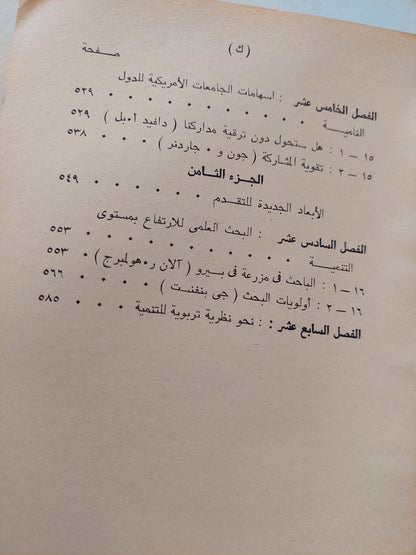 ( ك )
صفحة
الفصل الخامس عشر : اسهامات الجامعات الأمريكية للدول
النامية . . . . . . . . . . ٥٢٩
١٥ – ١ : هل ستحول دون ترقية مداركنا ( دافيد أ٠بل ) ٥٢٩
١٥ – ٢ : تقوية المشاركة ( جون و ٠ جاردنر ) . . . ٥٣٨
الجزء الثامن
الأبعاد الجديدة للتقدم . . . . . . ٥٤٩
الفصل السادس عشر : البحث العلمى للارتفاع بمستوى
التنمية . . . . . . . . . . ٥٥٣
١٦ – ١ : الباحث فى مزرعة فى بيرو ( آلان ر٠هولمبرج ) ٥٥٣
١٦ – ٢ : أولويات البحث ( جى بنفنست ) . . . . ٥٦٦
الفصل السابع عشر : : نحو نظرية تربوية للتنمية . . . ٥٨٥